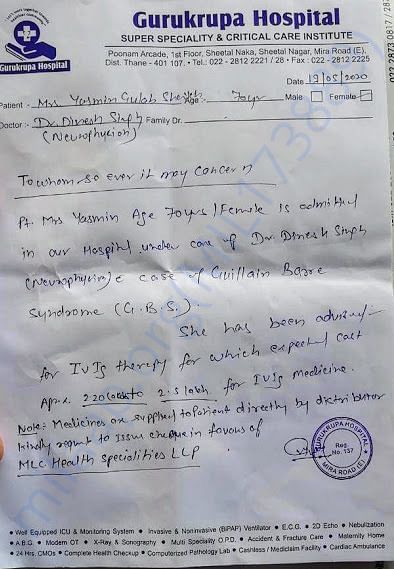 Gurukrupa Hospital
Gurukrupa Hospital
SUPER SPECIALITY & CRITICAL CARE INSTITUTE
Poonam Arcade, 1st Floor, Sheetal Naka, Sheetal Nagar, Mira Road (E),
Dist. Thane - 401 107. • Tel.: 022 - 2812 2221 / 28 • Fax : 022 - 2812 2225
022 2873 0817 / 28
Date 19/05/2020
Patient :- Mrs Yasmin Gulab Age :- 70yr Male Female
Doctor :- Dr. Dinesh Singh Family Dr.
(Neurophysion)
To whom so ever it may concern
Pt. Mrs Yasmin Age 70yrs/Female is admitted
in our Hospital under care of Dr. Dinesh Singh
(Neurophysion) c case of Guillain Barre
Syndrome (G.B.S.)
She has been advised
for IVIg therapy for which expected cost
Apx. 2.5 lakh for IVIg medicine.
Note: Medicines are supplied to patient directly by distributor
kindly request to issue cheque in favour of
MLC Health Specialities LLP
GURUKRUPA HOSPITAL
Reg. No. 137
MIRA ROAD (E)
• Well Equipped ICU & Monitoring System • Invasive & Noninvasive (BiPAP) Ventilator • E.C.G. • 2D Echo • Nebulization
• A.B.G. • Modern OT • X-Ray & Sonography • Multi Speciality O.P.D. • Accident & Fracture Care • Maternity Home
• 24 Hrs. CMOs • Complete Health Checkup • Computerized Pathology Lab • Cashless / Mediclaim Facility • Cardiac Ambulance